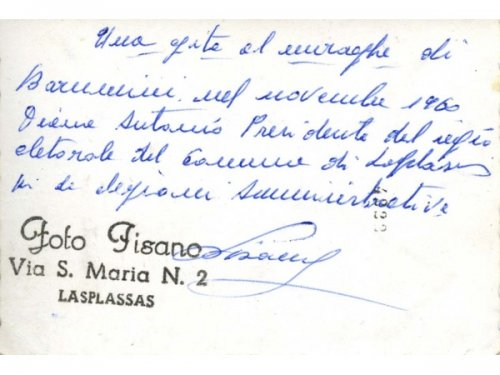 Una gita al nuraghe di
Barumini nel novembre 1960
Antonio Presidente del
eletorale del Comune di
di elezioni Amministrative
Foto Pisano
Via S. Maria N. 2
LASPLASSAS